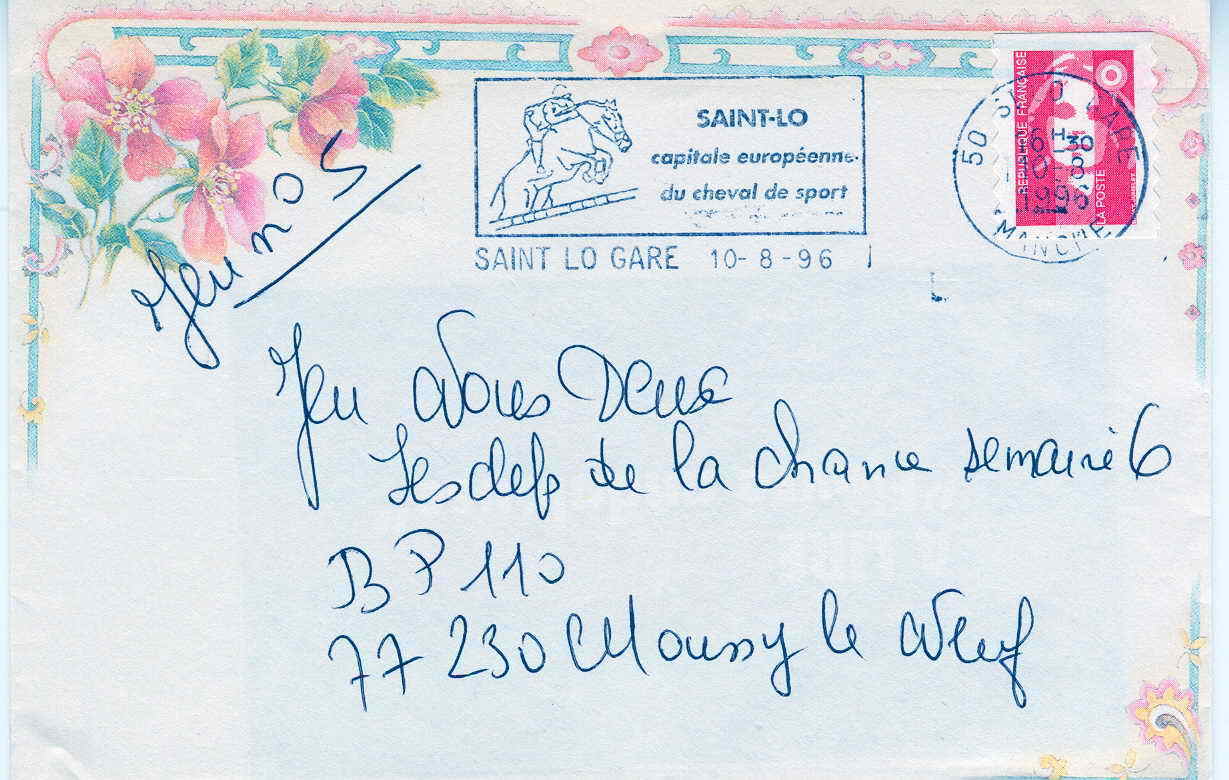 SAINT-LO
capitale européenne
du cheval de sport
SAINT LO GARE 10-8-96
REPUBLIQUE FRANÇAISE
LA POSTE
50
MANCHE
Jeu no 5
Jeu Nous Deux
Les clefs de la chance semaine 6
BP 110
77 230 Moussy le Neuf